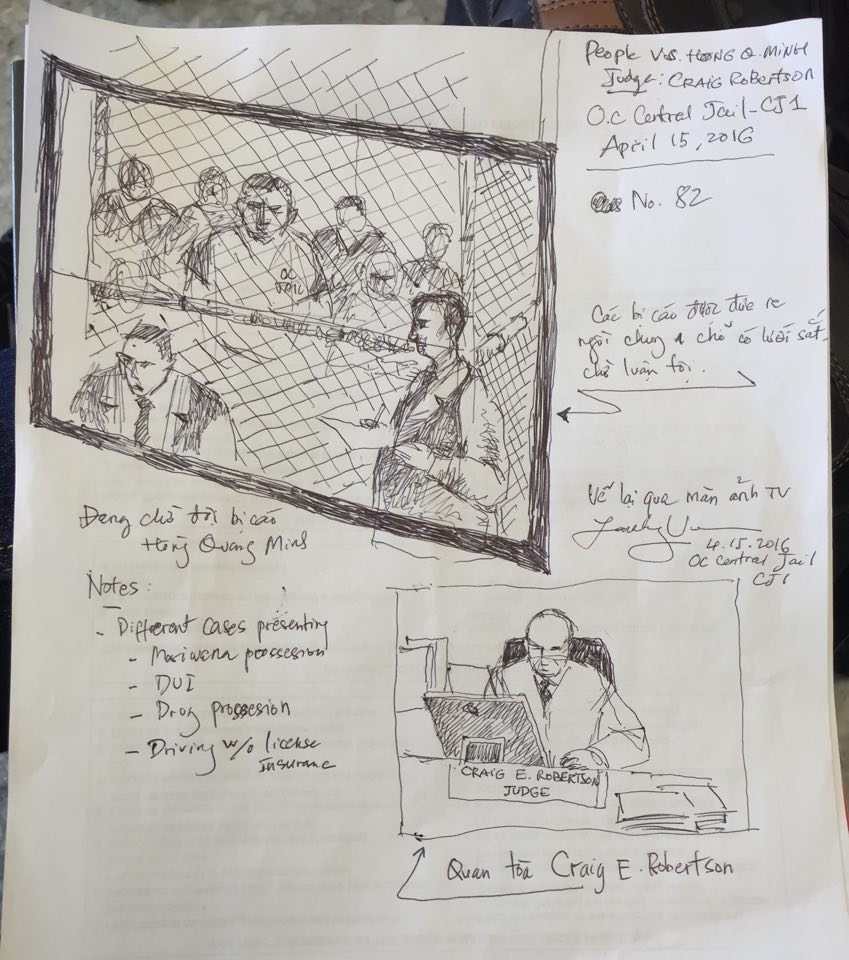 People Vs. HOONG Q. MINH
Judge: CRAIG ROBERTSON
O.C Central Jail - CJ1
April 15, 2016
No. 82
OC
JAIL
Các bị cáo được đưa ra
ngồi chung 1 chỗ có lưới sắt
chờ luận tội.
Vẽ lại qua màn ảnh TV
4.15.2016
OC Central Jail
CJ1
Đang chờ đợi bị cáo
Hồng Quang Minh
Notes:
- Different cases presenting
- Mariwana possession
- DUI
- Drog prossesion
- Driving w/o license
Insurane
CRAIG E. ROBERTSON
JUDGE
Quan tòa Craig E. Robertson